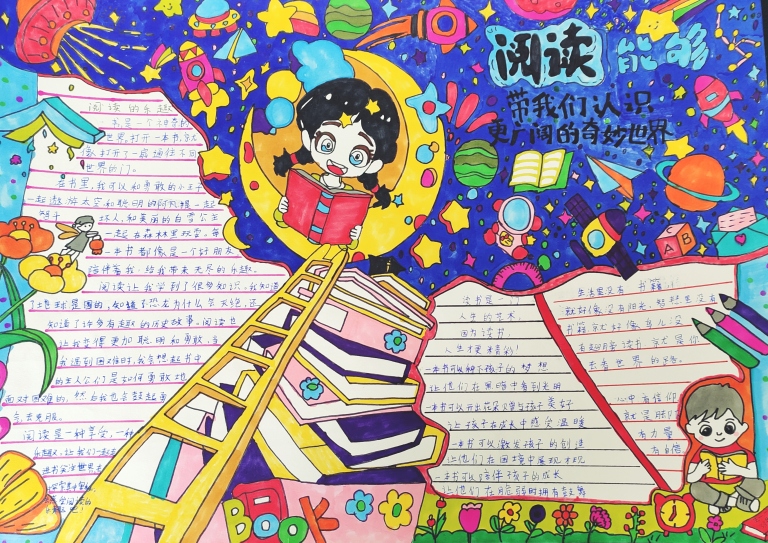 阅读能够
带我们认识
更广阔的奇妙世界
阅读的乐趣
世界,打开一本书,就
像打开了一扇通往不同
世界的门。
在书里,我可以和勇敢的小王子
一起遨游太空和聪明的阿凡提一起
坏人,和美丽的白雪公主
一起在森林里玩耍。每
一本书都像是一个好朋友
陪伴着我,给我带来无尽的乐趣。
阅读让我学到了很多知识。我知道
了地球是圆的,知道了恐龙为什么会灭绝,还
知道了许多有趣的历史故事。阅读也
让我变得更加聪明和勇敢,当
我遇到困难时,我会想起书中
的主人公们是如何勇敢地
面对困难的,然后我也会鼓起勇
气去克服。
阅读是一种享受,一种
读书是一门
人生的艺术,
因为读书,
人生才更精彩!
一本书可以种下孩子的梦想
让他们在黑暗中看到光明
一本书可以开出花朵
让孩子在成长中感受温暖
一本书可以激发孩子的创造
让他们在困境中展现才现
一本书可以陪伴孩子的成长
让他们在脆弱时拥有鼓舞
生活里没有书籍,
就好像没有阳光,
书籍,就好像鸟儿没
有翅膀。读书,就是你
去看世界的路。
心中有信仰
有力量
BOOK
A
B